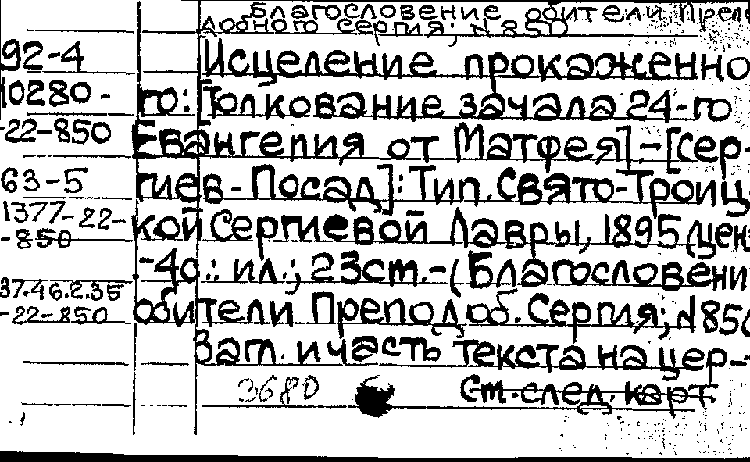 Благословение обители Преп
добного Сергия; N 850
92-4 Исцеление прокаженно
10280- го: [Толкование зачала 24-го
-22-850 Евангелия от Матфея]-[Сер-
63-5 гиев-Посад]: Тип. Свято-Троиц
1377-22- кой Сергиевой Лавры, 1895 (цен
-850 -4с.: ил.; 23см.-(Благословени
37.46.2.35 обители Преподоб. Сергия; N850
-22-850 Загл. и часть текста на цер-
3680 См. след. карт